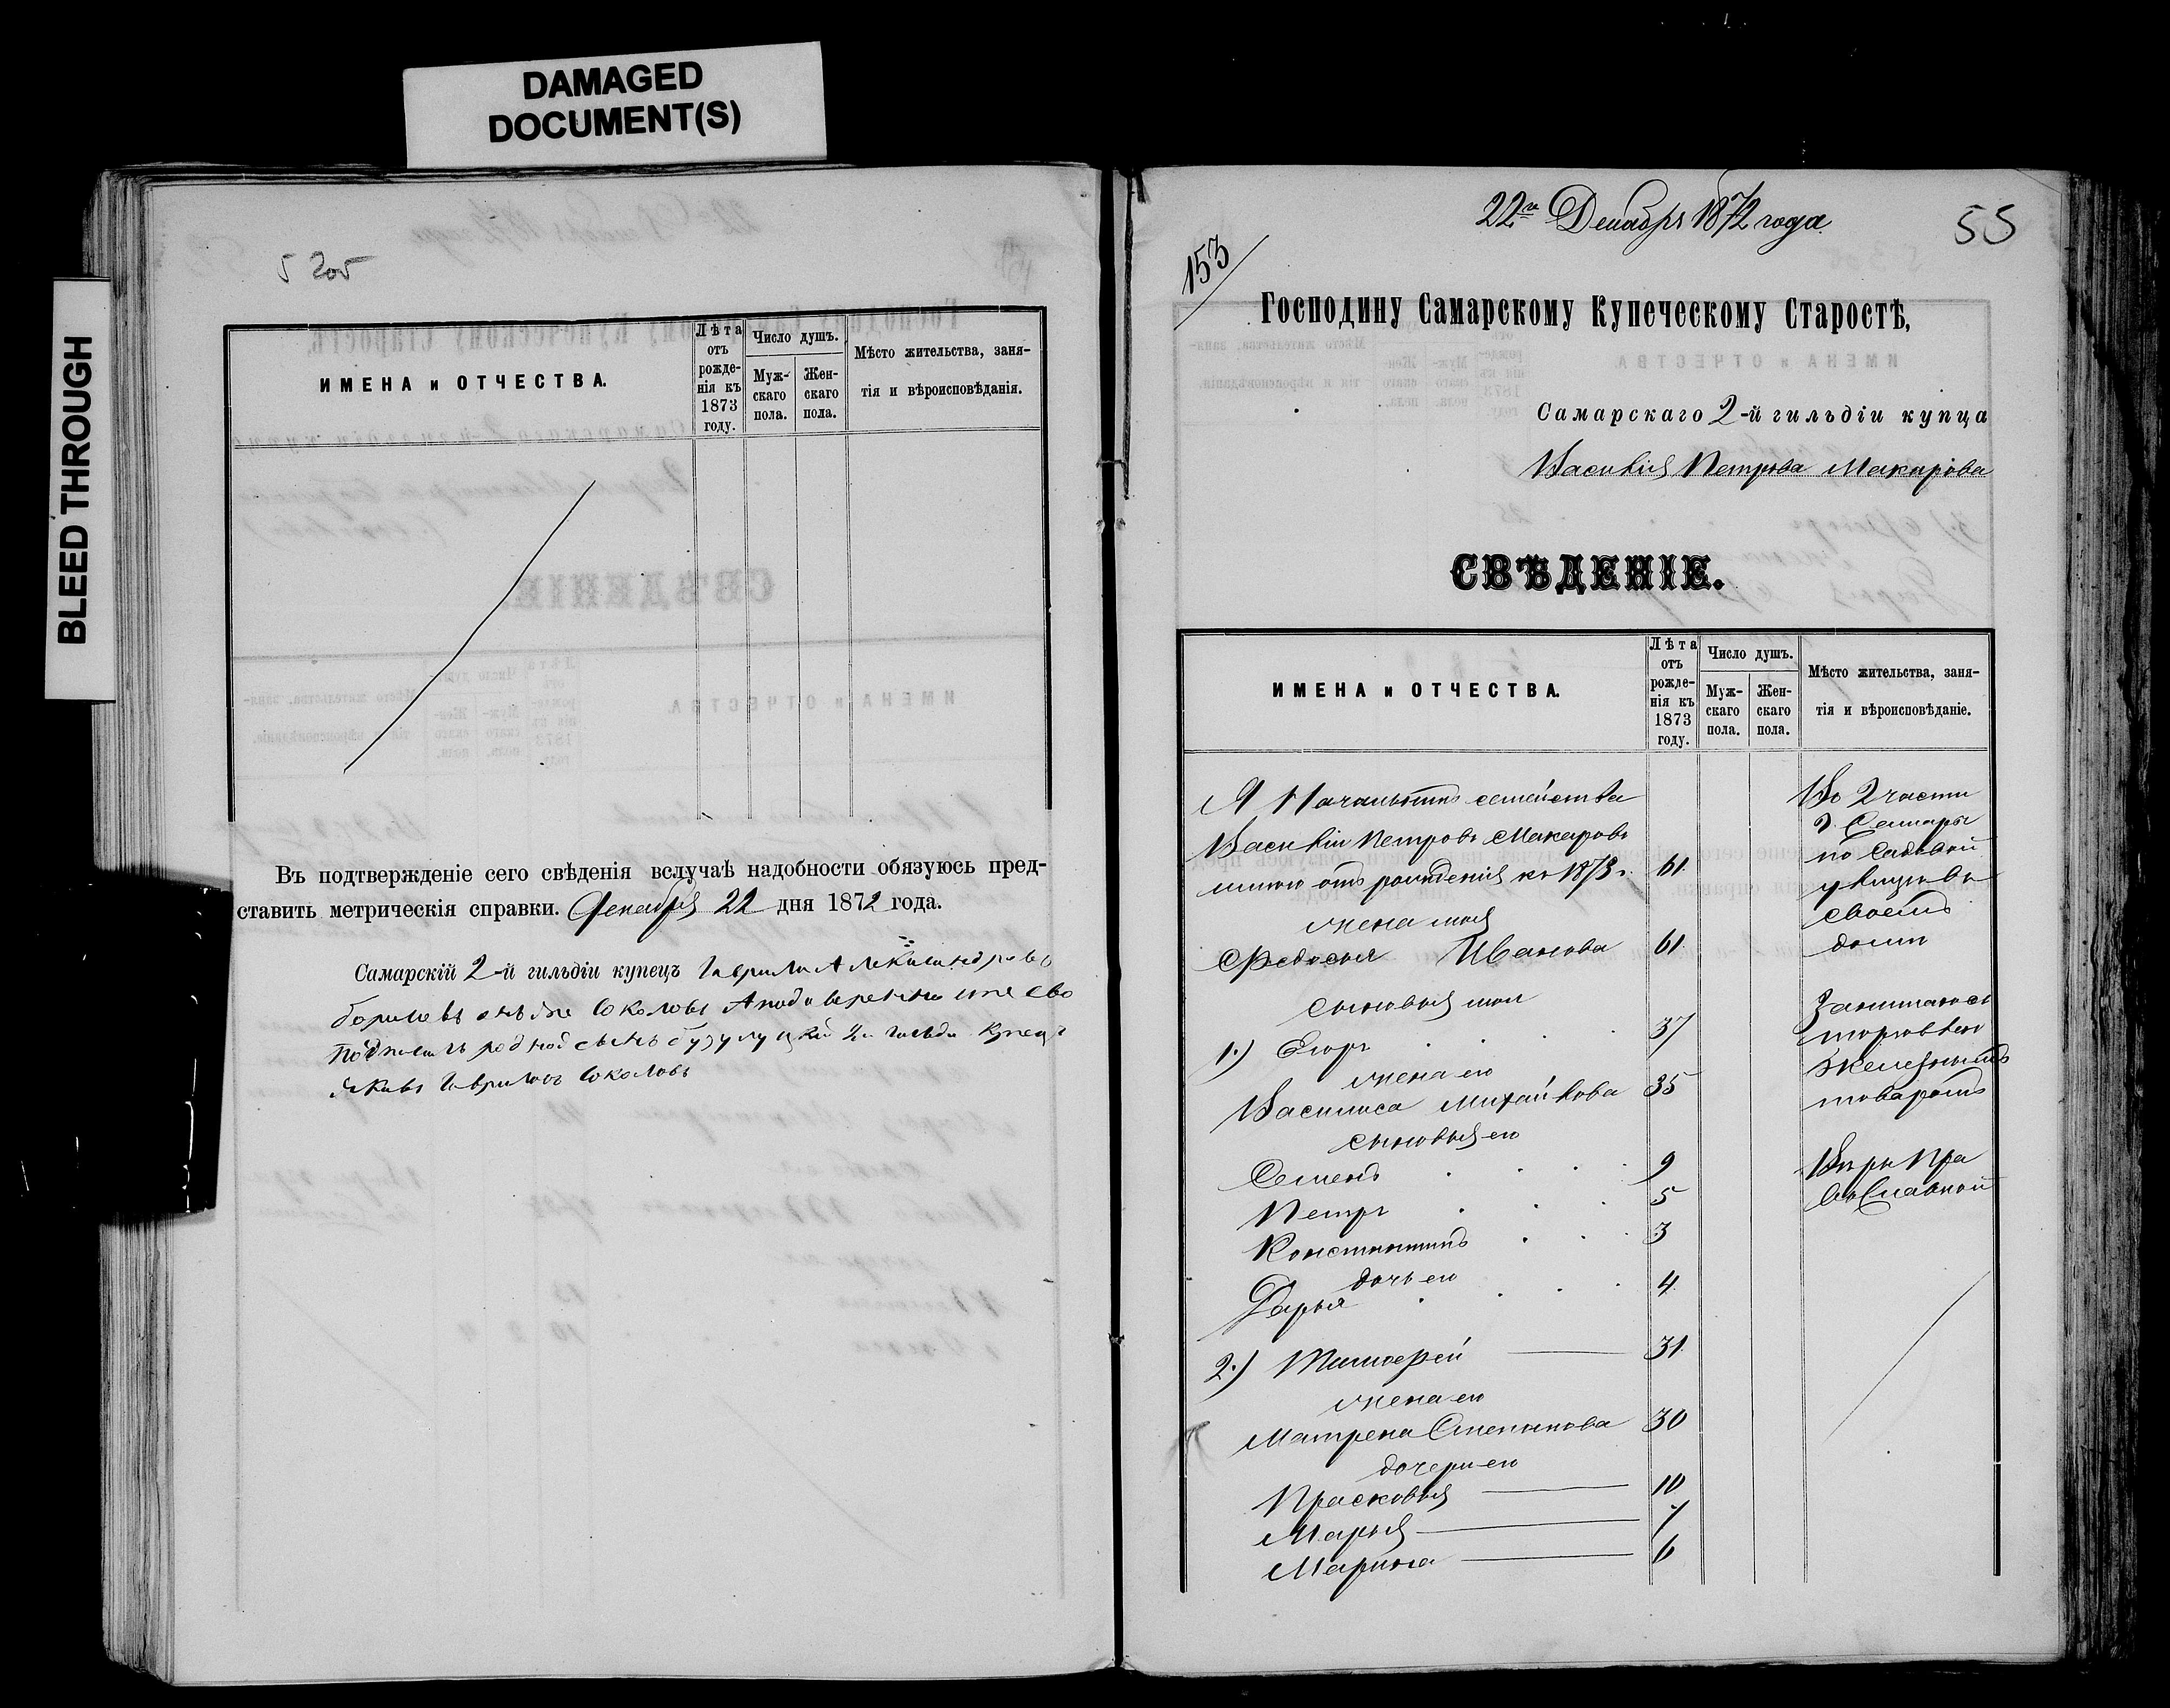 DAMAGED
DOCUMENT(S)
BLEED THROUGH
5 205
ИМЕНА и ОТЧЕСТВА.
Лѣта отъ рожде-нія къ 1873 году.
Число душъ.
Муж-скаго пола.
Жен-скаго пола.
Мѣсто жительства, заня-
тія и вѣроисповѣданія.
Въ подтвержденіе сего свѣденія вслучаѣ надобности обязуюсь пред-
ставить метрическія справки. Декабря 22 дня 1872 года.
Самарскій 2-й гильдіи купецъ Гаврила Александровъ
Соколовъ
подписалъ родной сынъ бузулуцкай 2й гильди купецъ
Яковъ Гавриловъ Соколовъ
22го Декабря 1872 года
55
153
Господину Самарскому Купеческому Старостѣ,
Самарскаго 2-й гильдіи купца
Василія Петрова Макарова
СВѢДЕНІЕ.
ИМЕНА и ОТЧЕСТВА.
Лѣта отъ рожде-нія къ 1873 году.
Число душъ.
Муж-скаго пола.
Жен-скаго пола.
Мѣсто жительства, заня-
тія и вѣроисповѣданіе.
Я Начальникъ семейства
Василій Петровъ Макаровъ
мнѣ отъ рожденія къ 1873 г. 61
жена моя
Федосья Иванова 61
сыновья мои
1.) Егоръ 37
жена его
Василиса Михайлова 35
сыновья его
Семенъ 9
Петръ 5
Константинъ 3
дочь его
Дарья 4
2.) Тимофей 31
жена его
Матрена Степанова 30
дочери его
Прасковья 10
Марья 7
Марина 6
Во 2 части
г. Самары
по Садовой
улицѣ въ
своемъ
доме
Занимаюсь
торговлею
железнымъ
товаромъ
Вѣры Пра
вославной